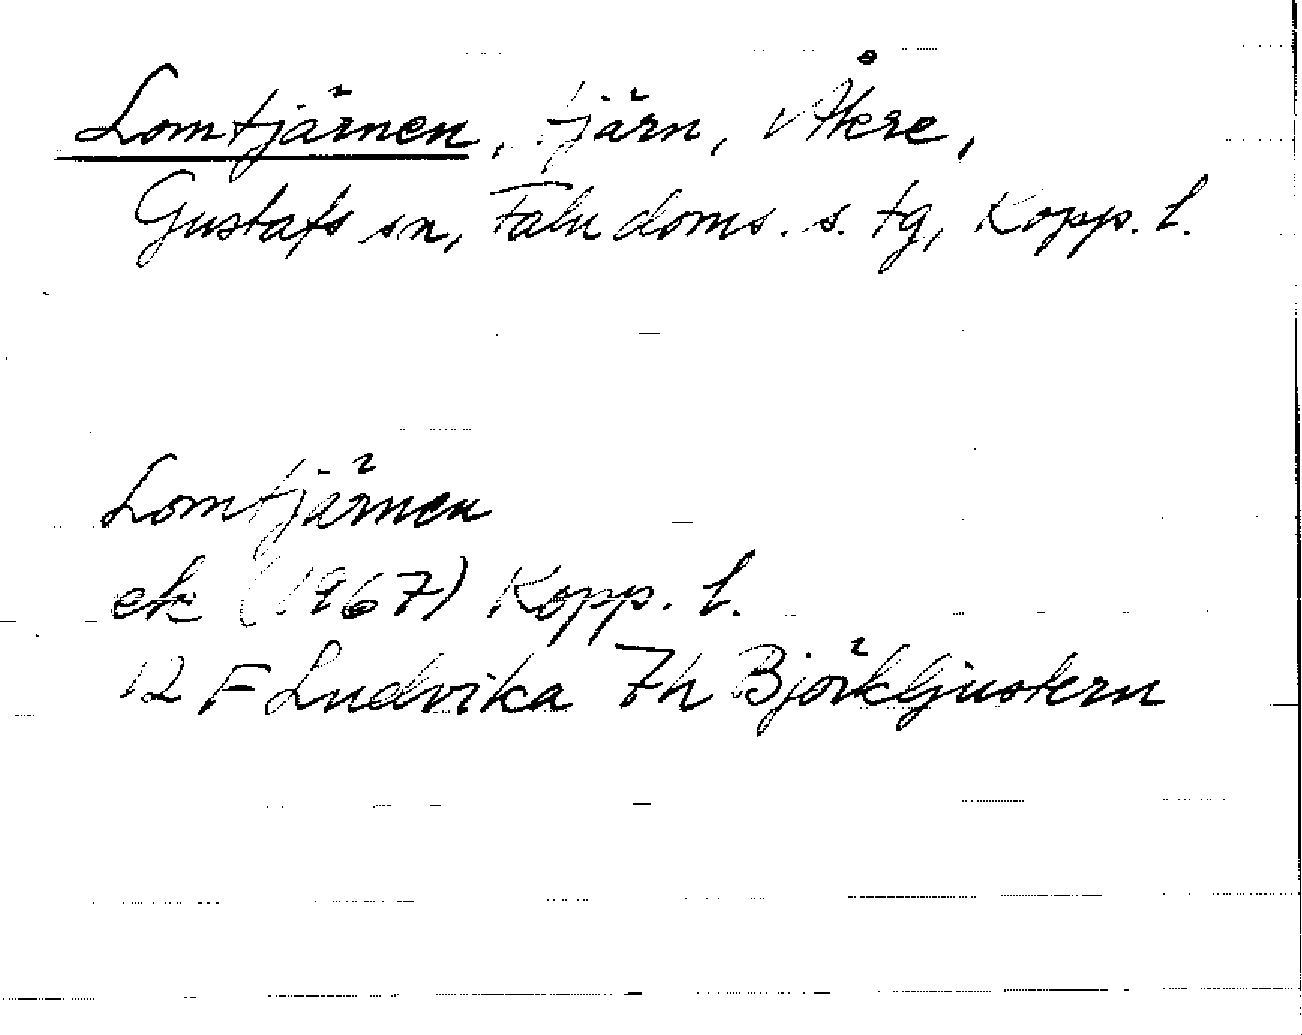 Lomtjärnen, tjärn, Åkre,
Gustafs sn, Falu doms. s. tg, Kopp. l.
Lomtjärnen
ek (1967) Kopp. l.
12 F Ludvika 7h Björkljustern